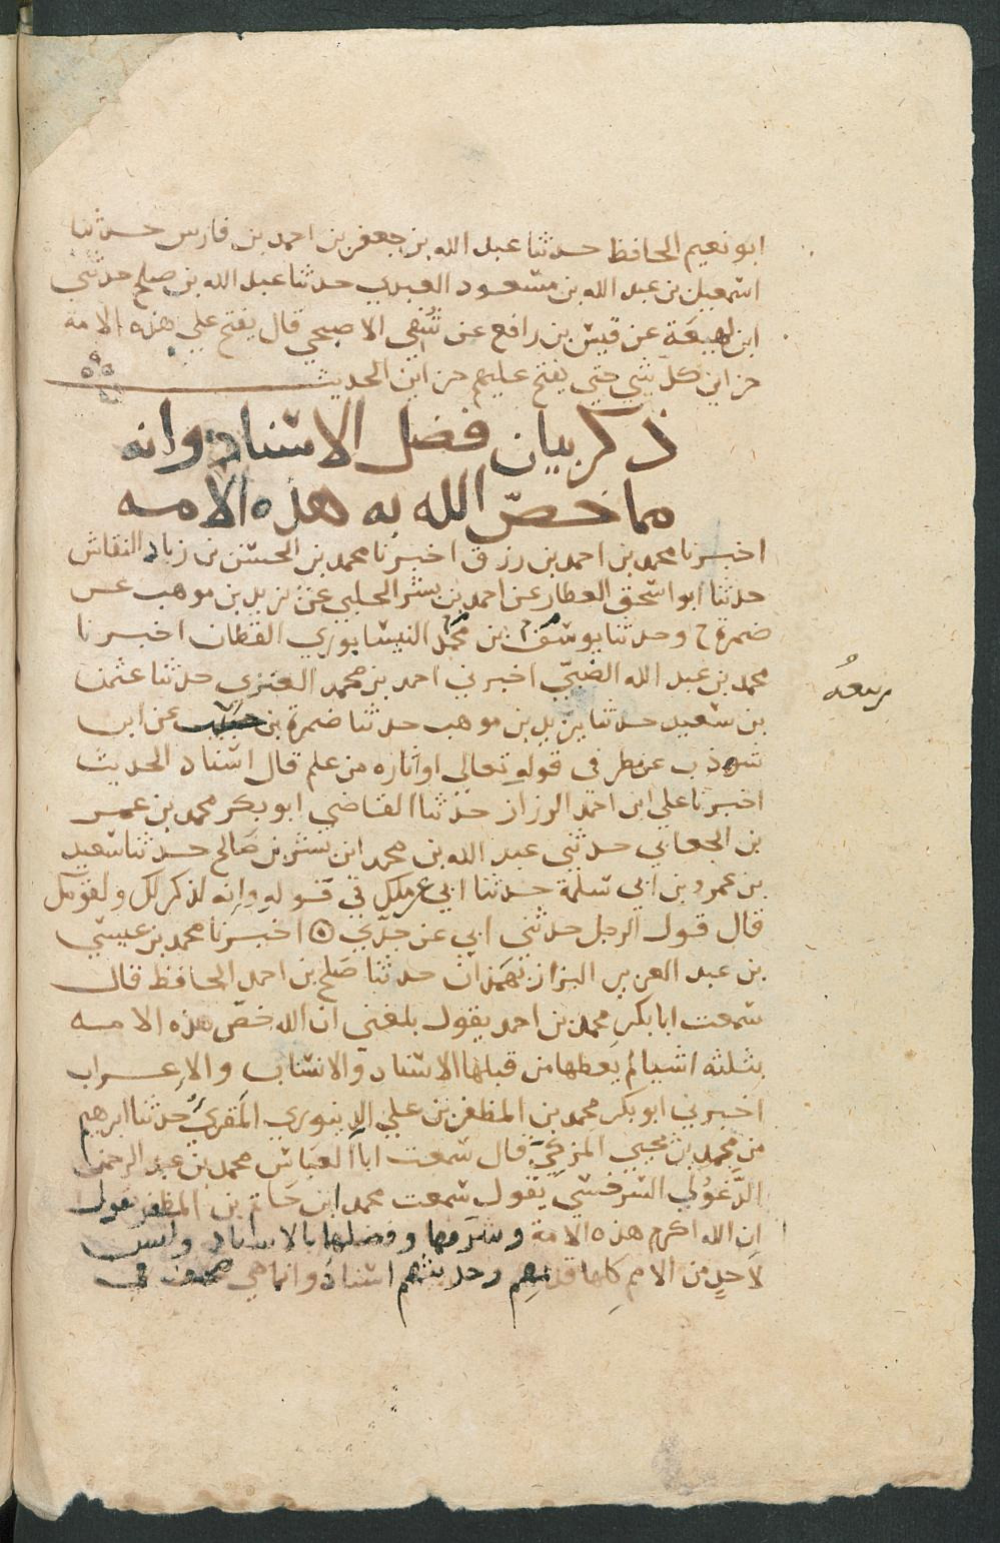 ابو نعيم الحافظ حدثنا عبد الله بن جعفر بن احمد بن فارس حدثنا
اسمعيل بن عبد الله بن مسعود العبدي حدثنا عبد الله بن صلح حدثني
ابن لهيعة عن قيس بن رافع عن شفي الاصبحي قال يفتح علي هذه الامة
خزاين كل شي حتي يفتح عليهم خزاين الحديث
ذكر بيان فضل الاسناد وانه
مما خصّ الله به هذه الامه
اخبرنا محمد بن احمد بن رزق اخبرنا محمد بن الحسن بن زياد النقاش
حدثنا ابو اسحق العطار عن احمد بن بشر الحلبي عن يزيد بن موهب عن
ضمرة ح وحدثنا يوسف بن محمد النيسابوري القطان اخبرنا
محمد بن عبد الله الضبّي اخبرني احمد بن محمد العنزي حدثنا عثمن
بن سعيد حدثنا يزيد بن موهب حدثنا ضمرة بن عن ابن
ربيعه
شوذب عن مطر في قوله تعالي او اثاره من علم قال اسناد الحديث
اخبرنا علي ابن احمد الرزاز حدثنا القاضي ابو بكر محمد بن عمر
بن الجعابي حدثني عبد الله بن محمد ابن بشر بن صالح حدثنا سعيد
بن عمرو بن ابي سلمة حدثنا ابي عن ملك في قوله وانه لذكر لك ولقومك
قال قول الرجل حدثني ابي عن جدّي ۞ اخبرنا محمد بن عيسي
بن عبد العزيز البزاز بهمذان حدثنا صلح بن احمد الحافظ قال
سمعت ابا بكر محمد بن احمد يقول بلغني ان الله خصّ هذه الامه
بثلثه اشيا لم يعطها من قبلها الاسناد والانساب والاعراب
اخبرني ابو بكر محمد بن المظفر بن علي الدينوري المقرئ حدثنا ابرهيم
بن محمد بن يحيي المزكي قال سمعت ابا العباس محمد بن عبد الرحمن
الدَّغُولي السرخسي يقول سمعت محمد ابن حاتم بن المظفر يقول
ان الله اكرم هذه الامة وشرفها وفضلها بالاسناد وليس
لاحدٍ من الامم كلها قديمهم وحديثهم اسنادٌ وانما هي صحف في